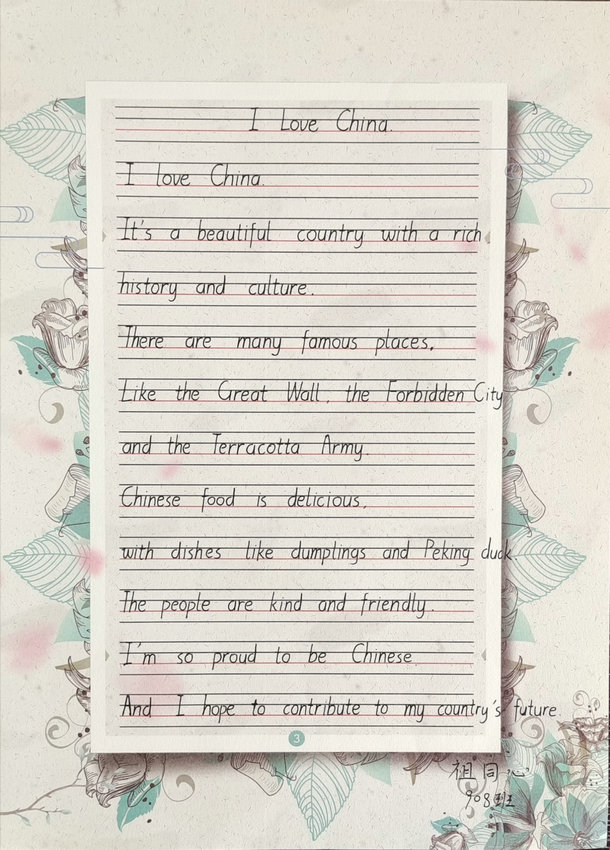 I Love China.
I love China.
It's a beautiful country with a rich
history and culture.
There are many famous places.
Like the Great Wall, the Forbidden City
and the Terracotta Army.
Chinese food is delicious,
with dishes like dumplings and Peking duck.
The people are kind and friendly.
I'm so proud to be Chinese.
And I hope to contribute to my country's future.
3
祖同心
908班